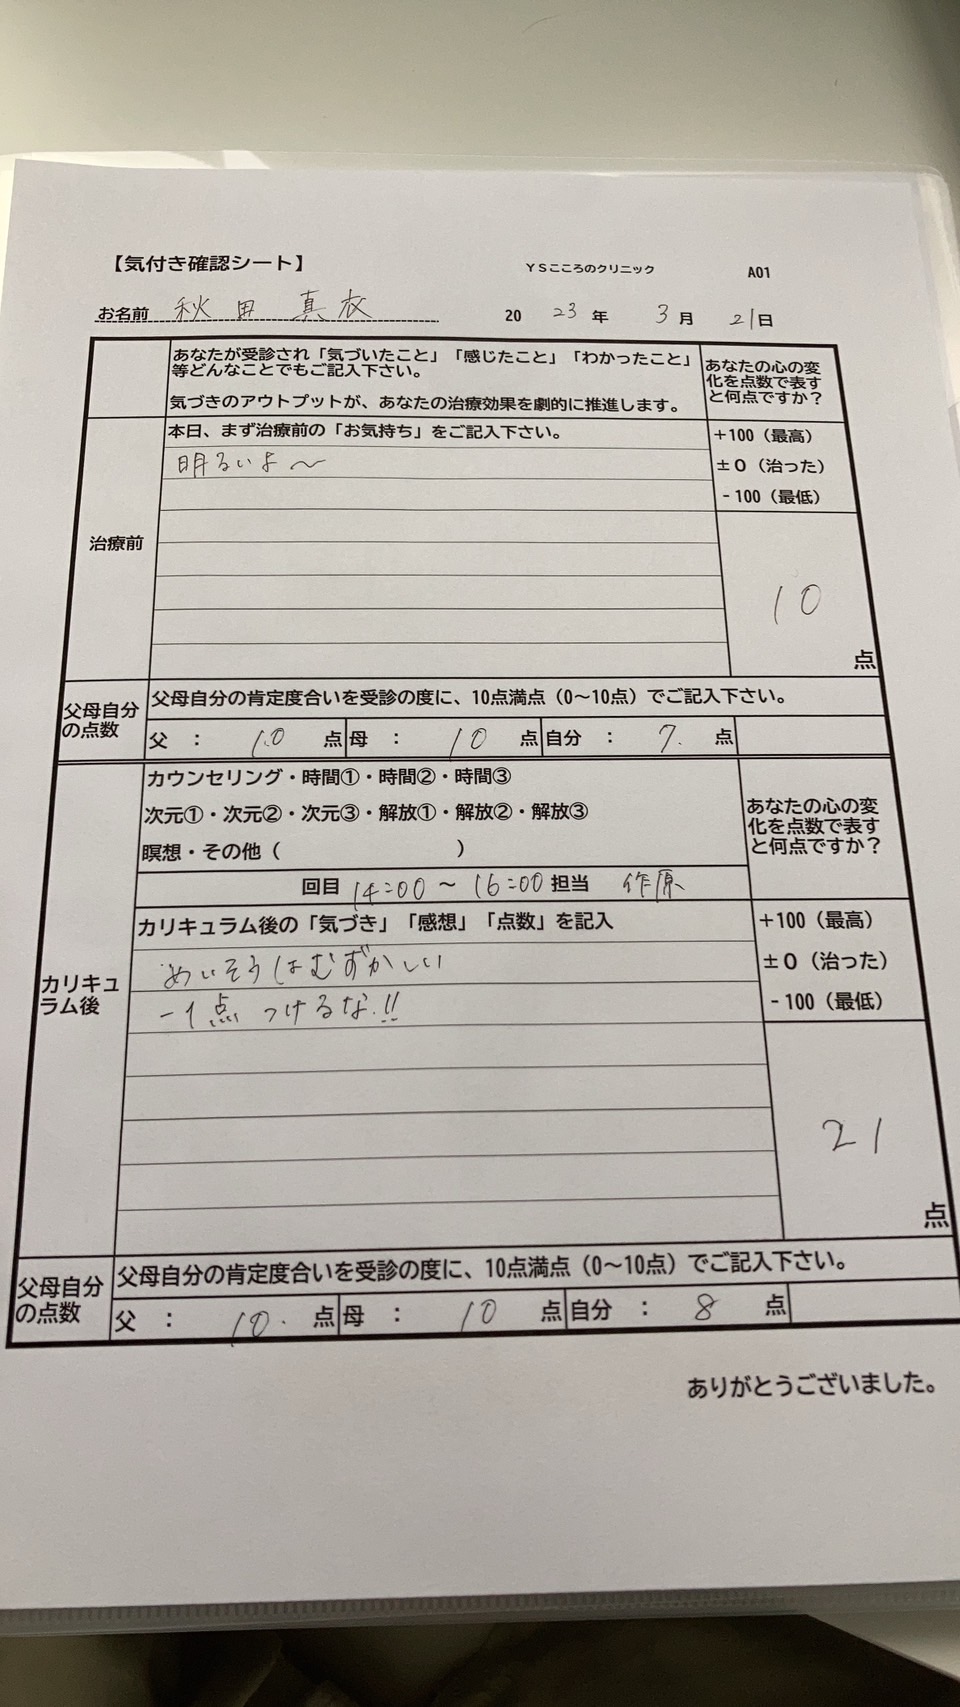 【気付き確認シート】 ＹＳこころのクリニック A01
お名前 秋田 真衣 20 23 年 3 月 21 日
あなたが受診され「気づいたこと」「感じたこと」「わかったこと」
等どんなことでもご記入下さい。
気づきのアウトプットが、あなたの治療効果を劇的に推進します。
あなたの心の変
化を点数で表す
と何点ですか？
治療前
本日、まず治療前の「お気持ち」をご記入下さい。
明るいよ〜
＋100（最高）
±０（治った）
－100（最低）
10
点
父母自分
の点数
父母自分の肯定度合いを受診の度に、10点満点（0〜10点）でご記入下さい。
父 ： 10 点 母 ： 10 点 自分 ： 7. 点
カリキュ
ラム後
カウンセリング・時間①・時間②・時間③
次元①・次元②・次元③・解放①・解放②・解放③
瞑想・その他（ ）
回目 14:00 〜 16:00 担当 作原
あなたの心の変
化を点数で表す
と何点ですか？
カリキュラム後の「気づき」「感想」「点数」を記入
めいそうはむずかしい
－1点 つけるな!!
＋100（最高）
±０（治った）
－100（最低）
21
点
父母自分
の点数
父母自分の肯定度合いを受診の度に、10点満点（0〜10点）でご記入下さい。
父 ： 10. 点 母 ： 10 点 自分 ： 8 点
ありがとうございました。